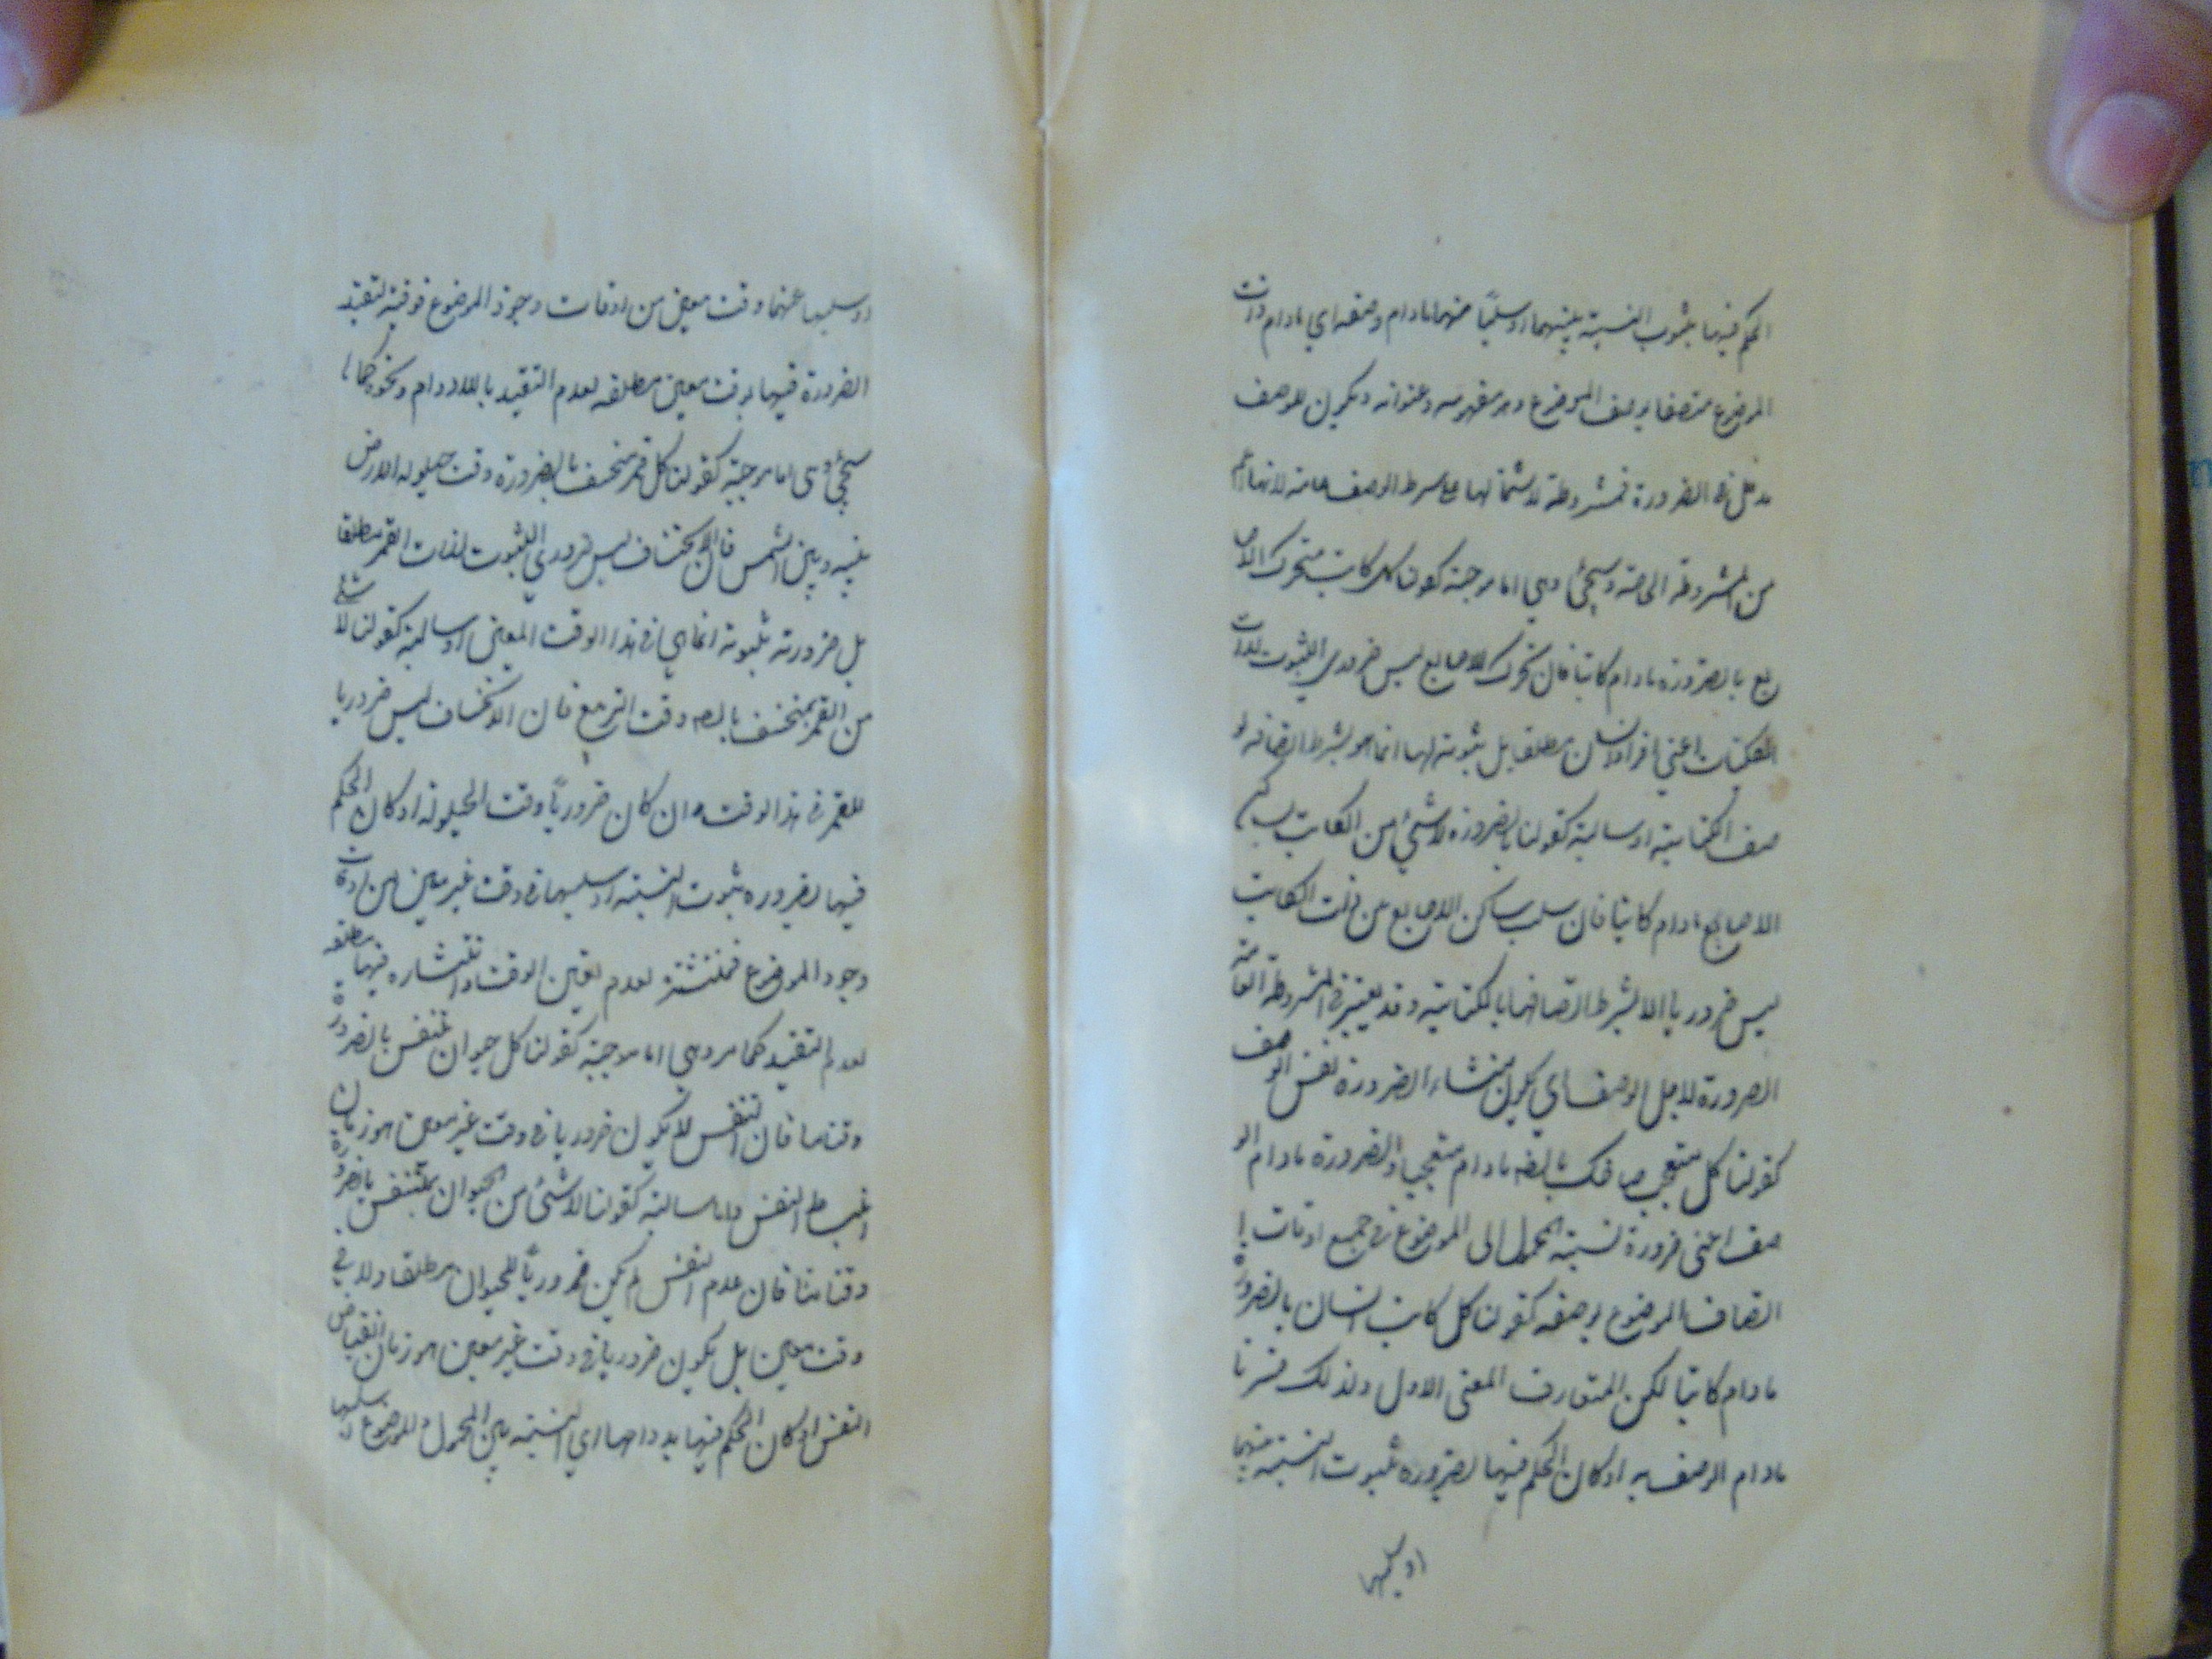 الحكم فيها بثبوت النسبة بينهما او سلبها عنهما مادام وصفه اي مادام ذات
الموضوع متصفا بوصف الموضوع وهو مفهومه وعنوانه ويكون للوصف
مدخل في الضرورة فمشروطة لاشتمالها على شرط الوصف عامة لانها اعم
من المشروطة الخاصة وسيجئ وهي اما موجبة كقولنا كل كاتب متحرك الاصا
بع بالضرورة مادام كاتبا فان تحرك الاصابع ليس ضروري الثبوت لذات
الكاتب اعني افراد الانسان مطلقا بل ثبوته لها انما هو بشرط اتصافه بو
صف الكتابة او سالبة كقولنا بالضرورة لا شئ من الكاتب بساكن
الاصابع مادام كاتبا فان سلب ساكن الاصابع من ذات الكاتب
ليس ضروريا الا بشرط اتصافها بالكتابة وقد يعتبر في المشروطة العامة
الضرورة لاجل الوصف اي يكون منشاء الضرورة نفس الوصف
كقولنا كل متعجب ضاحك بالضه مادام متعجبا والضرورة مادام الو
صف اعنى ضرورة نسبة المحمول الى الموضوع في جميع اوقات ا
اتصاف الموضوع بوصفه كقولنا كل كاتب انسان بالضرورة
مادام كاتبا لكن المتعارف المعنى الاول ولذلك فسرنا
مادام الوصف به او كان الحكم فيها لضرورة ثبوت النسبة منهما
او سلبها
او سلبها عنهما وقت معين من اوقات وجود الموضوع فوقتية لتقيد
الضرورة فيها بوقت معين مطلقه لعدم التقيد باللادوام ونحوه كما
سيجئ وهى اما موجبة كقولنا كل قمر منخسف بالضرورة وقت حيلوله الارض
بينه وبين الشمس فان الانخساف ليس ضروري الثبوت لذات القمر مطلقا
بل ضرورته ثبوته انما هي في هذا الوقت المعين او سالبة كقولنا لا شئ
من القمر بمنخسف بالضه وقت التربيع فان الانخساف ليس ضروريا
للقمر في هذا الوقت وان كان ضروريا وقت الحيلولة او كان الحكم
فيها لضروره ثبوت النسبة او سلبها في وقت غير معين من اوقات
وجود الموضوع فمنتشرة لعدم تعين الوقت وانتشاره فيها مطلقه
لعدم التقيد كما مر وهي اما موجبة كقولنا كل حيوان متنفس بالضرورة
وقتا ما فان التنفس للا يكون ضروريا في وقت غير معين هو زمان
النفس واما سالبة كقولنا لا شئ من الحيوان بمتنفس بالضرورة
وقتا ما فان عدم التنفس لم يكن ضروريا للحيوان مطلقا ولا في
وقت معين بل يكون ضروريا في وقت غير معين هو زمان انقباض
النفس او كان الحكم فيها بدوامها اي النسبة بين المحمول للموضوع او سلبها